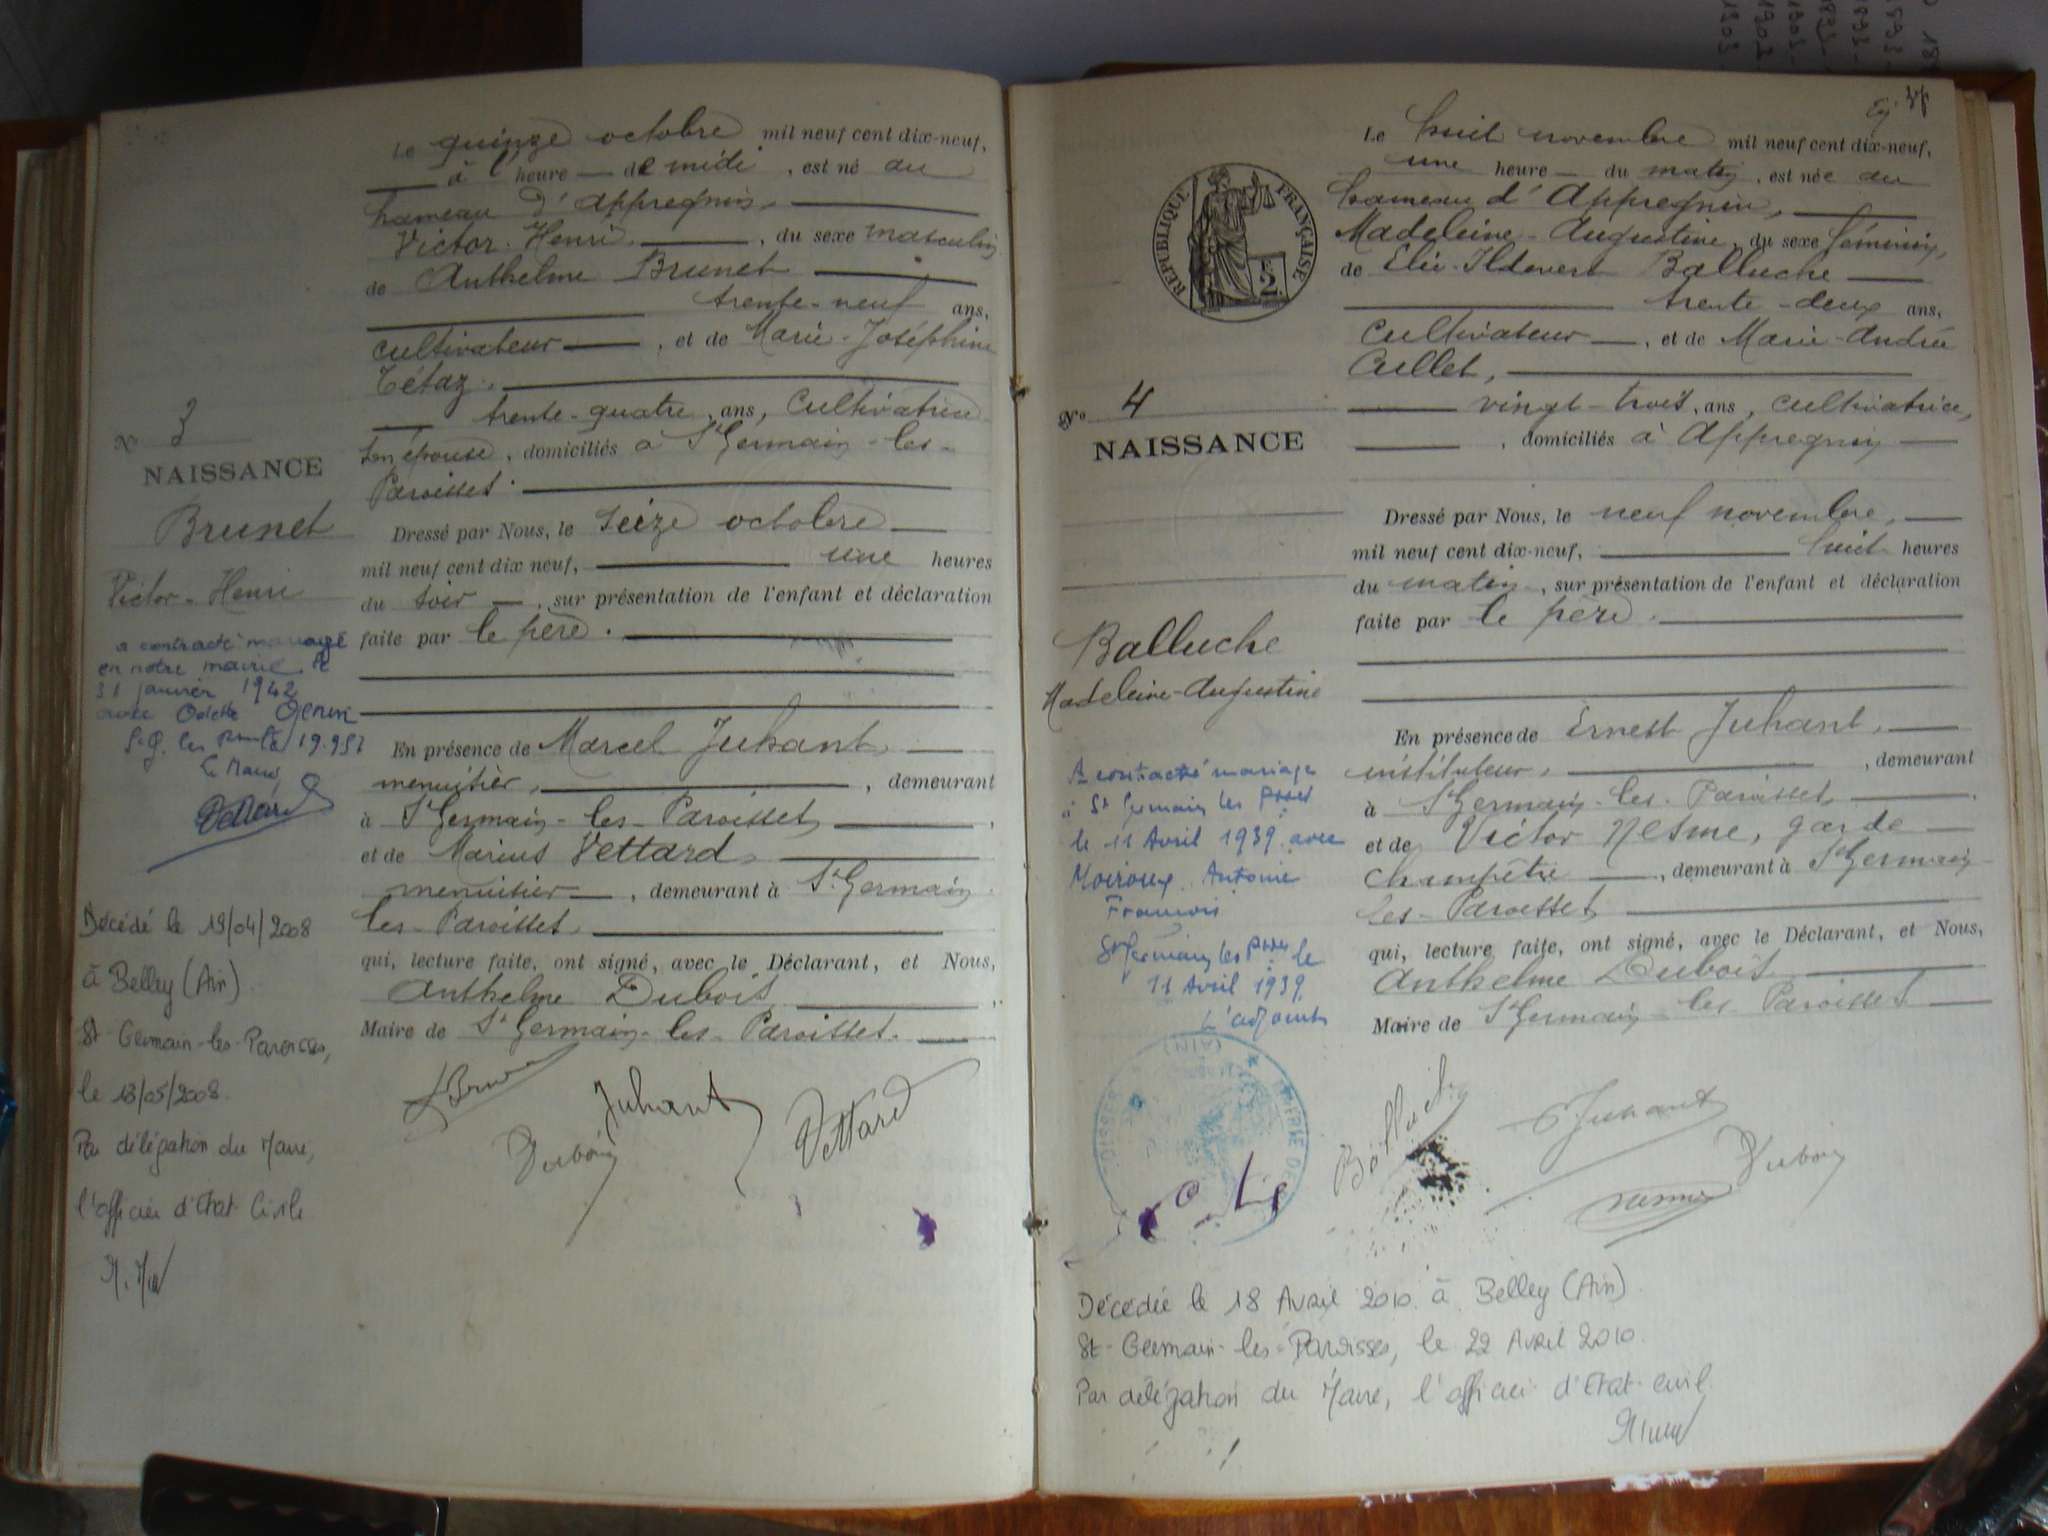 Le quinze octobre mil neuf cent dix-neuf,
à l'heure de midi, est né au
hameau d'Appregnin,
Victor-Henri, du sexe masculin
de Anthelme Brunet
trente-neuf ans,
cultivateur, et de Marie-Joséphine
Tétaz,
trente-quatre, ans, cultivatrice
son épouse, domiciliés à St Germain-les-
Paroisses.
Dressé par Nous, le seize octobre
mil neuf cent dix neuf, une heures
du soir, sur présentation de l'enfant et déclaration
faite par le père.
En présence de Marcel Juhant,
menuisier, demeurant
à St Germain-les-Paroisses,
et de Marius Vettard,
menuisier, demeurant à St Germain
les-Paroisses,
qui, lecture faite, ont signé, avec le Déclarant, et Nous,
Anthelme Dubois,
Maire de St Germain-les-Paroisses.
Brunet
Juhant
Dubois
Vettard
No 3
NAISSANCE
Brunet
Victor-Henri
a contracté mariage
en notre mairie le
31 janvier 1942
avec Odette
S.G. les
Le Maire
Vettard
Décédé le 19/04/2008
à Belley (Ain)
St Germain-les-Paroisses,
le 13/05/2008.
Par délégation du Maire,
l'officier d'Etat Civile
Le huit novembre mil neuf cent dix-neuf,
une heure du matin, est née au
hameau d'Appregnin,
Madeleine-Augustine, du sexe féminin,
de Balluche
trente-deux ans,
cultivateur, et de Marie-Andrée
Cullet,
vingt-trois, ans, cultivatrice,
domiciliés à Appregnin
Dressé par Nous, le neuf novembre,
mil neuf cent dix-neuf, huit heures
du matin, sur présentation de l'enfant et déclaration
faite par le père.
En présence de Ernest Juhant,
instituteur, demeurant
à St Germain-les-Paroisses,
et de Victor Nesme, garde
champêtre, demeurant à St Germain
les-Paroisses
qui, lecture faite, ont signé, avec le Déclarant, et Nous,
Anthelme Dubois
Maire de St Germain-les-Paroisses
RÉPUBLIQUE FRANÇAISE
2
No 4
NAISSANCE
Balluche
Madeleine-Augustine
A contracté mariage
à St Germain les Psses
le 11 Avril 1939 avec
Moiroux Antoine
François
St Germain les Psses le
11 Avril 1939
L'adjoint
MAIRIE DE
(AIN)
Balluche
E Juhant
Dubois
Nesme
Décédée le 18 Avril 2010 à Belley (Ain).
St-Germain-les-Paroisses, le 22 Avril 2010.
Par délégation du Maire, l'officier d'Etat Civil